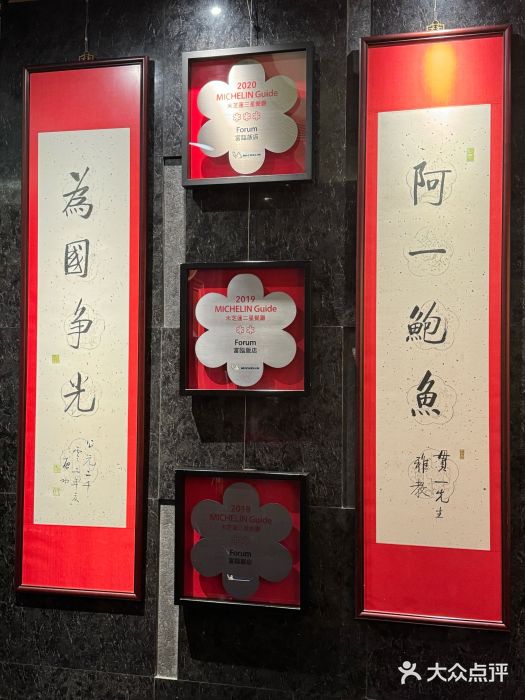 阿一鮑魚
貫一先生
雅教
為國爭光
啟功
2020
MICHELIN Guide
米芝蓮三星餐廳
Forum
富臨飯店
2019
MICHELIN Guide
米芝蓮二星餐廳
Forum
富臨飯店
2018
MICHELIN Guide
Forum
富臨飯店
大众点评